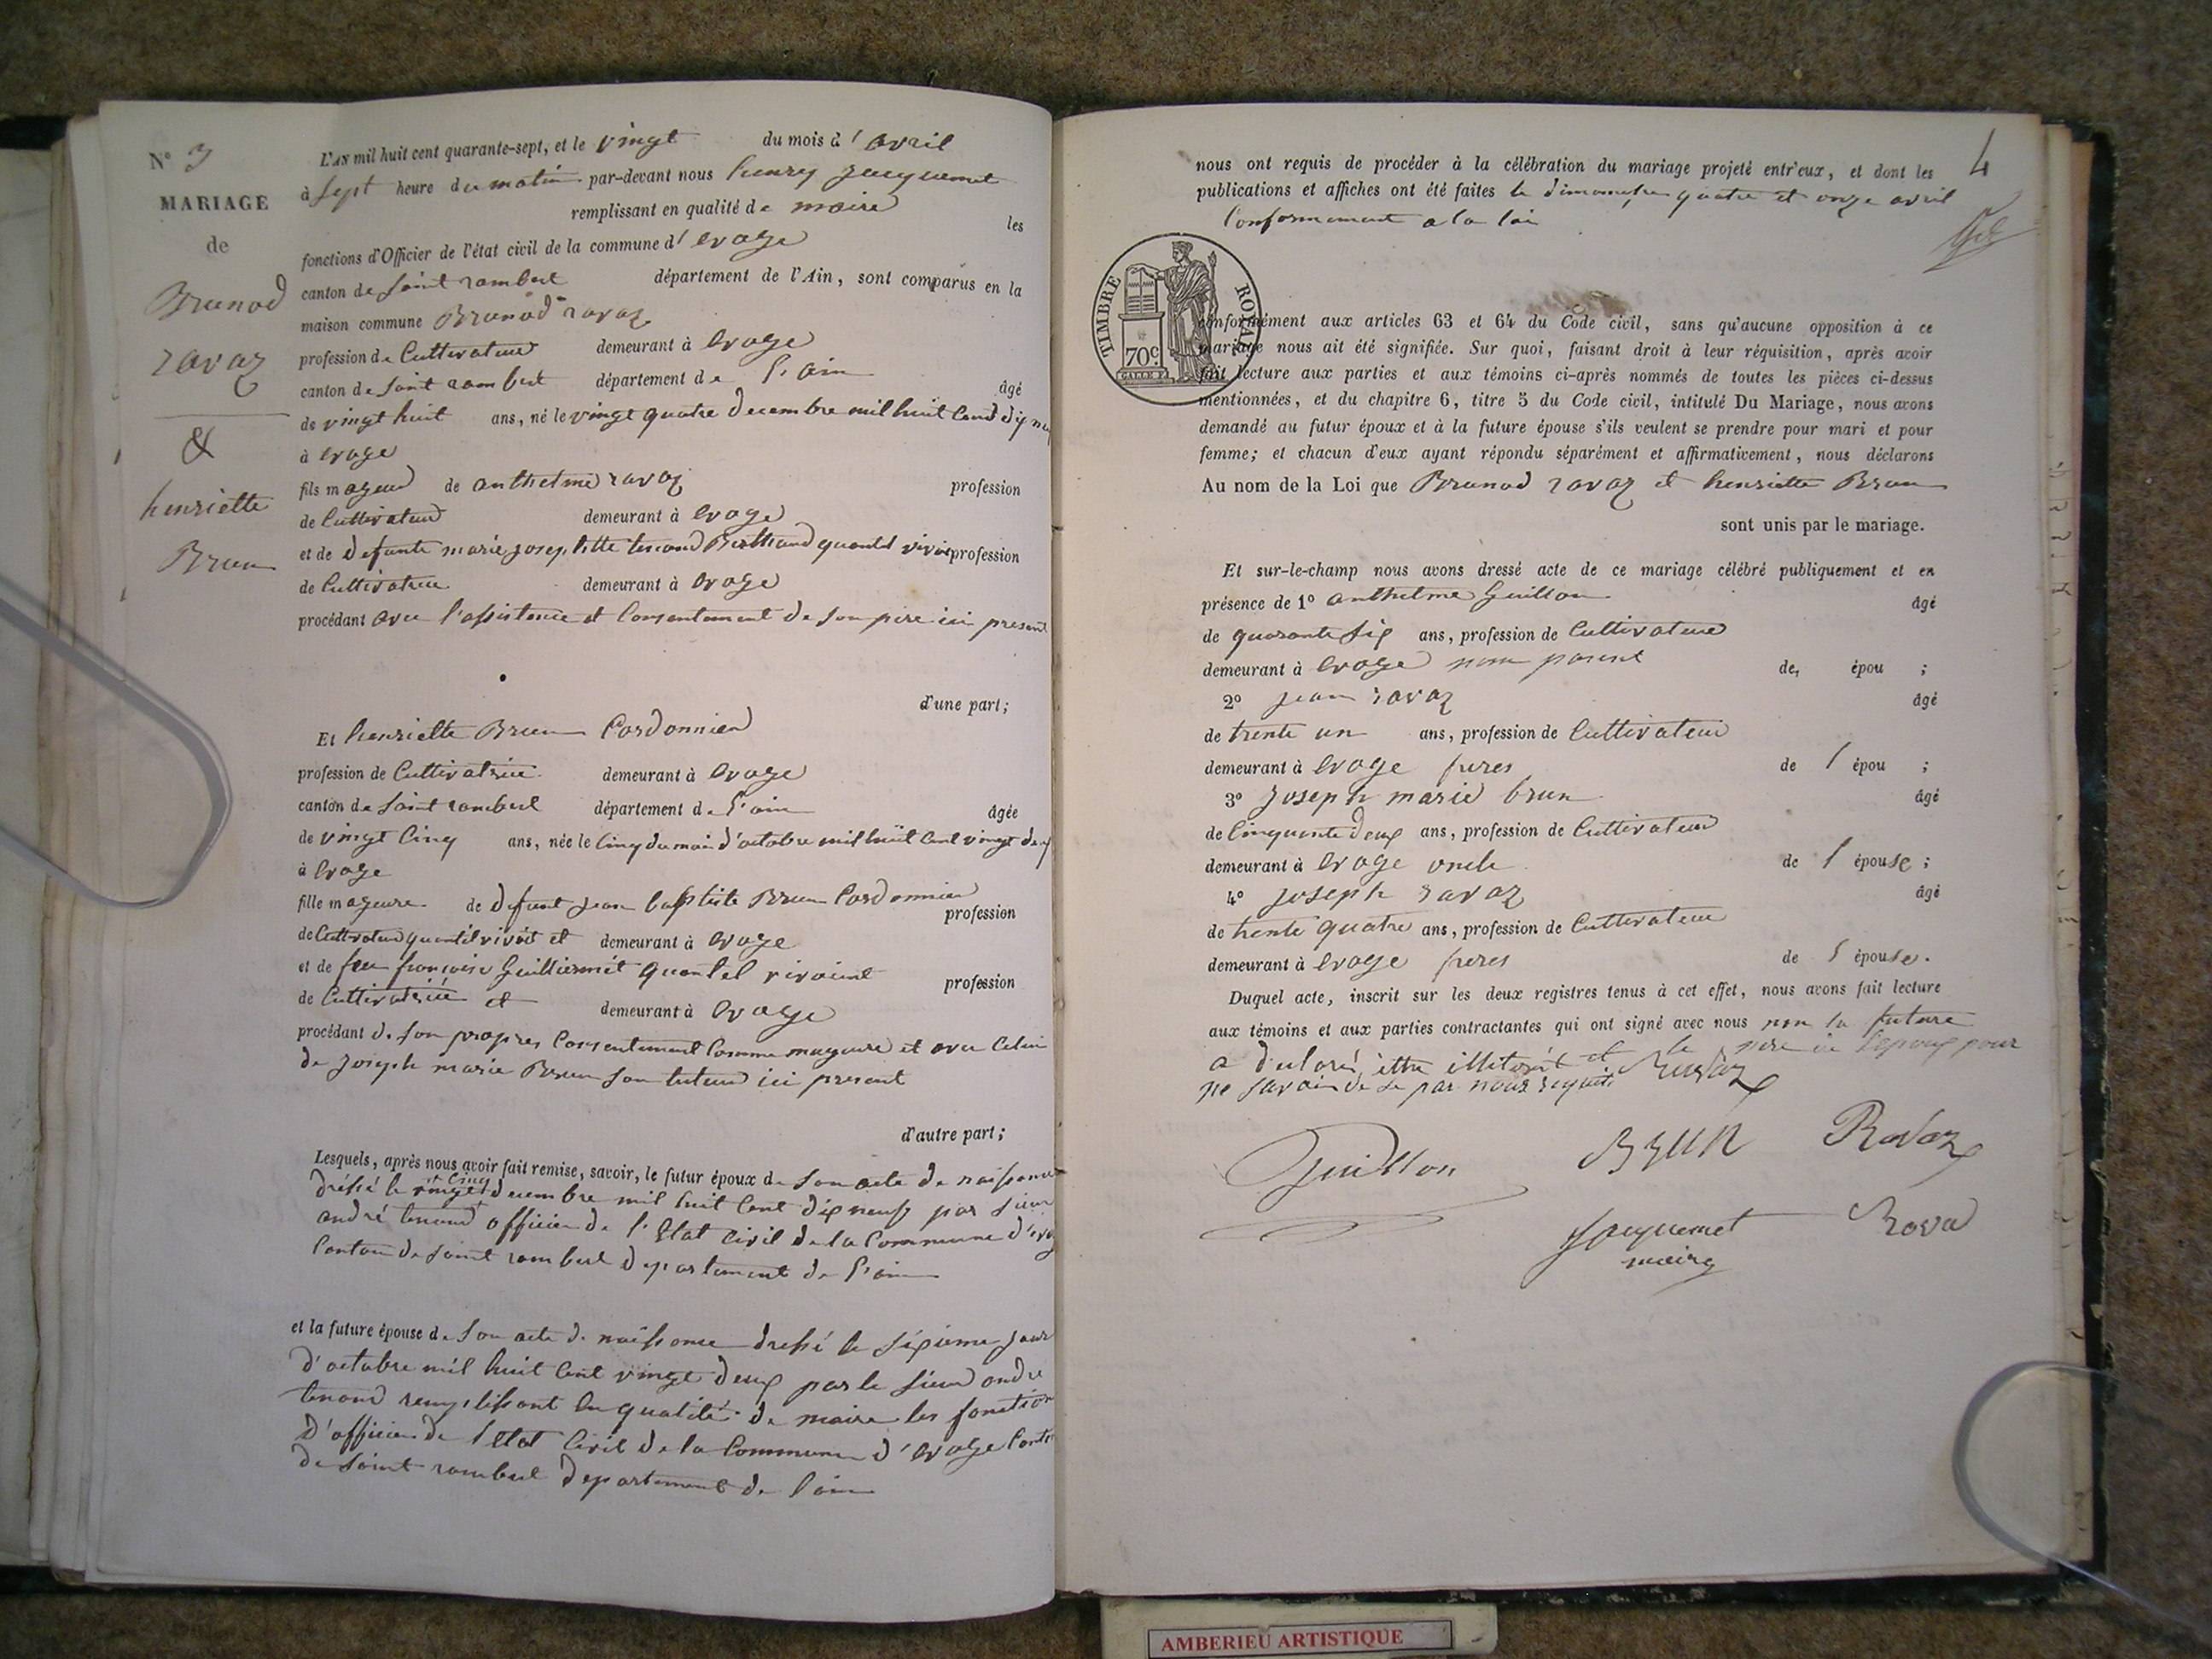 N° 3
MARIAGE
de
Brunod
ravaz
&
henriette
Brun
L'AN mil huit cent quarante-sept, et le vingt du mois d' avril
à sept heure du matin par-devant nous henry jacquemet
remplissant en qualité de maire les
fonctions d'Officier de l'état civil de la commune d' evoge
canton de saint rambert département de l'Ain, sont comparus en la
maison commune Brunod ravaz
profession de Cultivateur demeurant à evoge
canton de saint rambert département de l'ain âgé
de vingt huit ans, né le vingt quatre decembre mil huit Cend dix
à evoge
fils mageur de anthelme ravaz profession
de Cultivateur demeurant à evoge
et de defunte marie josephtte Berthand quantel vivoi profession
de Cultivatrice demeurant à evoge
procédant avec l'assistence et Consentement de son pere ici present
d'une part;
Et henriette Brun Cordonnier
profession de Cultivatrice demeurant à evoge
canton de saint rambert département de l'ain âgée
de vingt Cinq ans, née le Cinq du mois d'octobre mil huit Cent vingt deux
à evoge
fille mageure de defunt jean baptiste Brun Cordonnier profession
de Cultivateur quantil vivoit et demeurant à evoge
et de feu françoise Guilliermet quantel vivoient profession
de Cultivatrice et demeurant à evoge
procédant de son propres Consentement Comme mageure et avec Celui
de joseph marie Brun son tuteur ici present
d'autre part;
Lesquels, après nous avoir fait remise, savoir, le futur époux de son acte de naissance
dréssé le vingt et Cinq decembre mil huit Cent dix neuf par sieur
andré tenand officier de l'Etat Civil de la Commune d'evoge
Canton de saint rambert departement de l'ain
et la future épouse de son acte de naissance dressé le sixieme jour
d'octobre mil huit Cent vingt deux par le sieur andre
tenand remplissant en qualité de maire les fonction
d'officier de l'etat Civil de la Commune d'evoge Canton
de saint rambert departement de l'ain
4
nous ont requis de procéder à la célébration du mariage projeté entr'eux, et dont les
publications et affiches ont été faites le dimanche quatre et onze avril
Conformement a la loi
TIMBRE ROYAL
70c.
conformément aux articles 63 et 64 du Code civil, sans qu'aucune opposition à ce
mariage nous ait été signifiée. Sur quoi, faisant droit à leur réquisition, après avoir
fait lecture aux parties et aux témoins ci-après nommés de toutes les pièces ci-dessus
mentionnées, et du chapitre 6, titre 5 du Code civil, intitulé Du Mariage, nous avons
demandé au futur époux et à la future épouse s'ils veulent se prendre pour mari et pour
femme; et chacun d'eux ayant répondu séparément et affirmativement, nous déclarons
Au nom de la Loi que Brunod ravaz et henriette Brun
sont unis par le mariage.
Et sur-le-champ nous avons dressé acte de ce mariage célébré publiquement et en
présence de 1° anthelme Guillon âgé
de quarante six ans, profession de Cultivateur
demeurant à evoge non parent de, épou ;
2° jean ravaz âgé
de trente un ans, profession de Cultivateur
demeurant à evoge freres de l épou ;
3° joseph marie brun âgé
de Cinquante deux ans, profession de Cultivateur
demeurant à evoge oncle de l épouse ;
4° joseph ravaz âgé
de trente quatre ans, profession de Cultivateur
demeurant à evoge freres de l épouse.
Duquel acte, inscrit sur les deux registres tenus à cet effet, nous avons fait lecture
aux témoins et aux parties contractantes qui ont signé avec nous non la future
et le pere de l'epoux pour
ne savoir de ce par nous requit
Guillon
BRUN
Ravaz
jacquemet
maire
Rova
AMBERIEU ARTISTIQUE